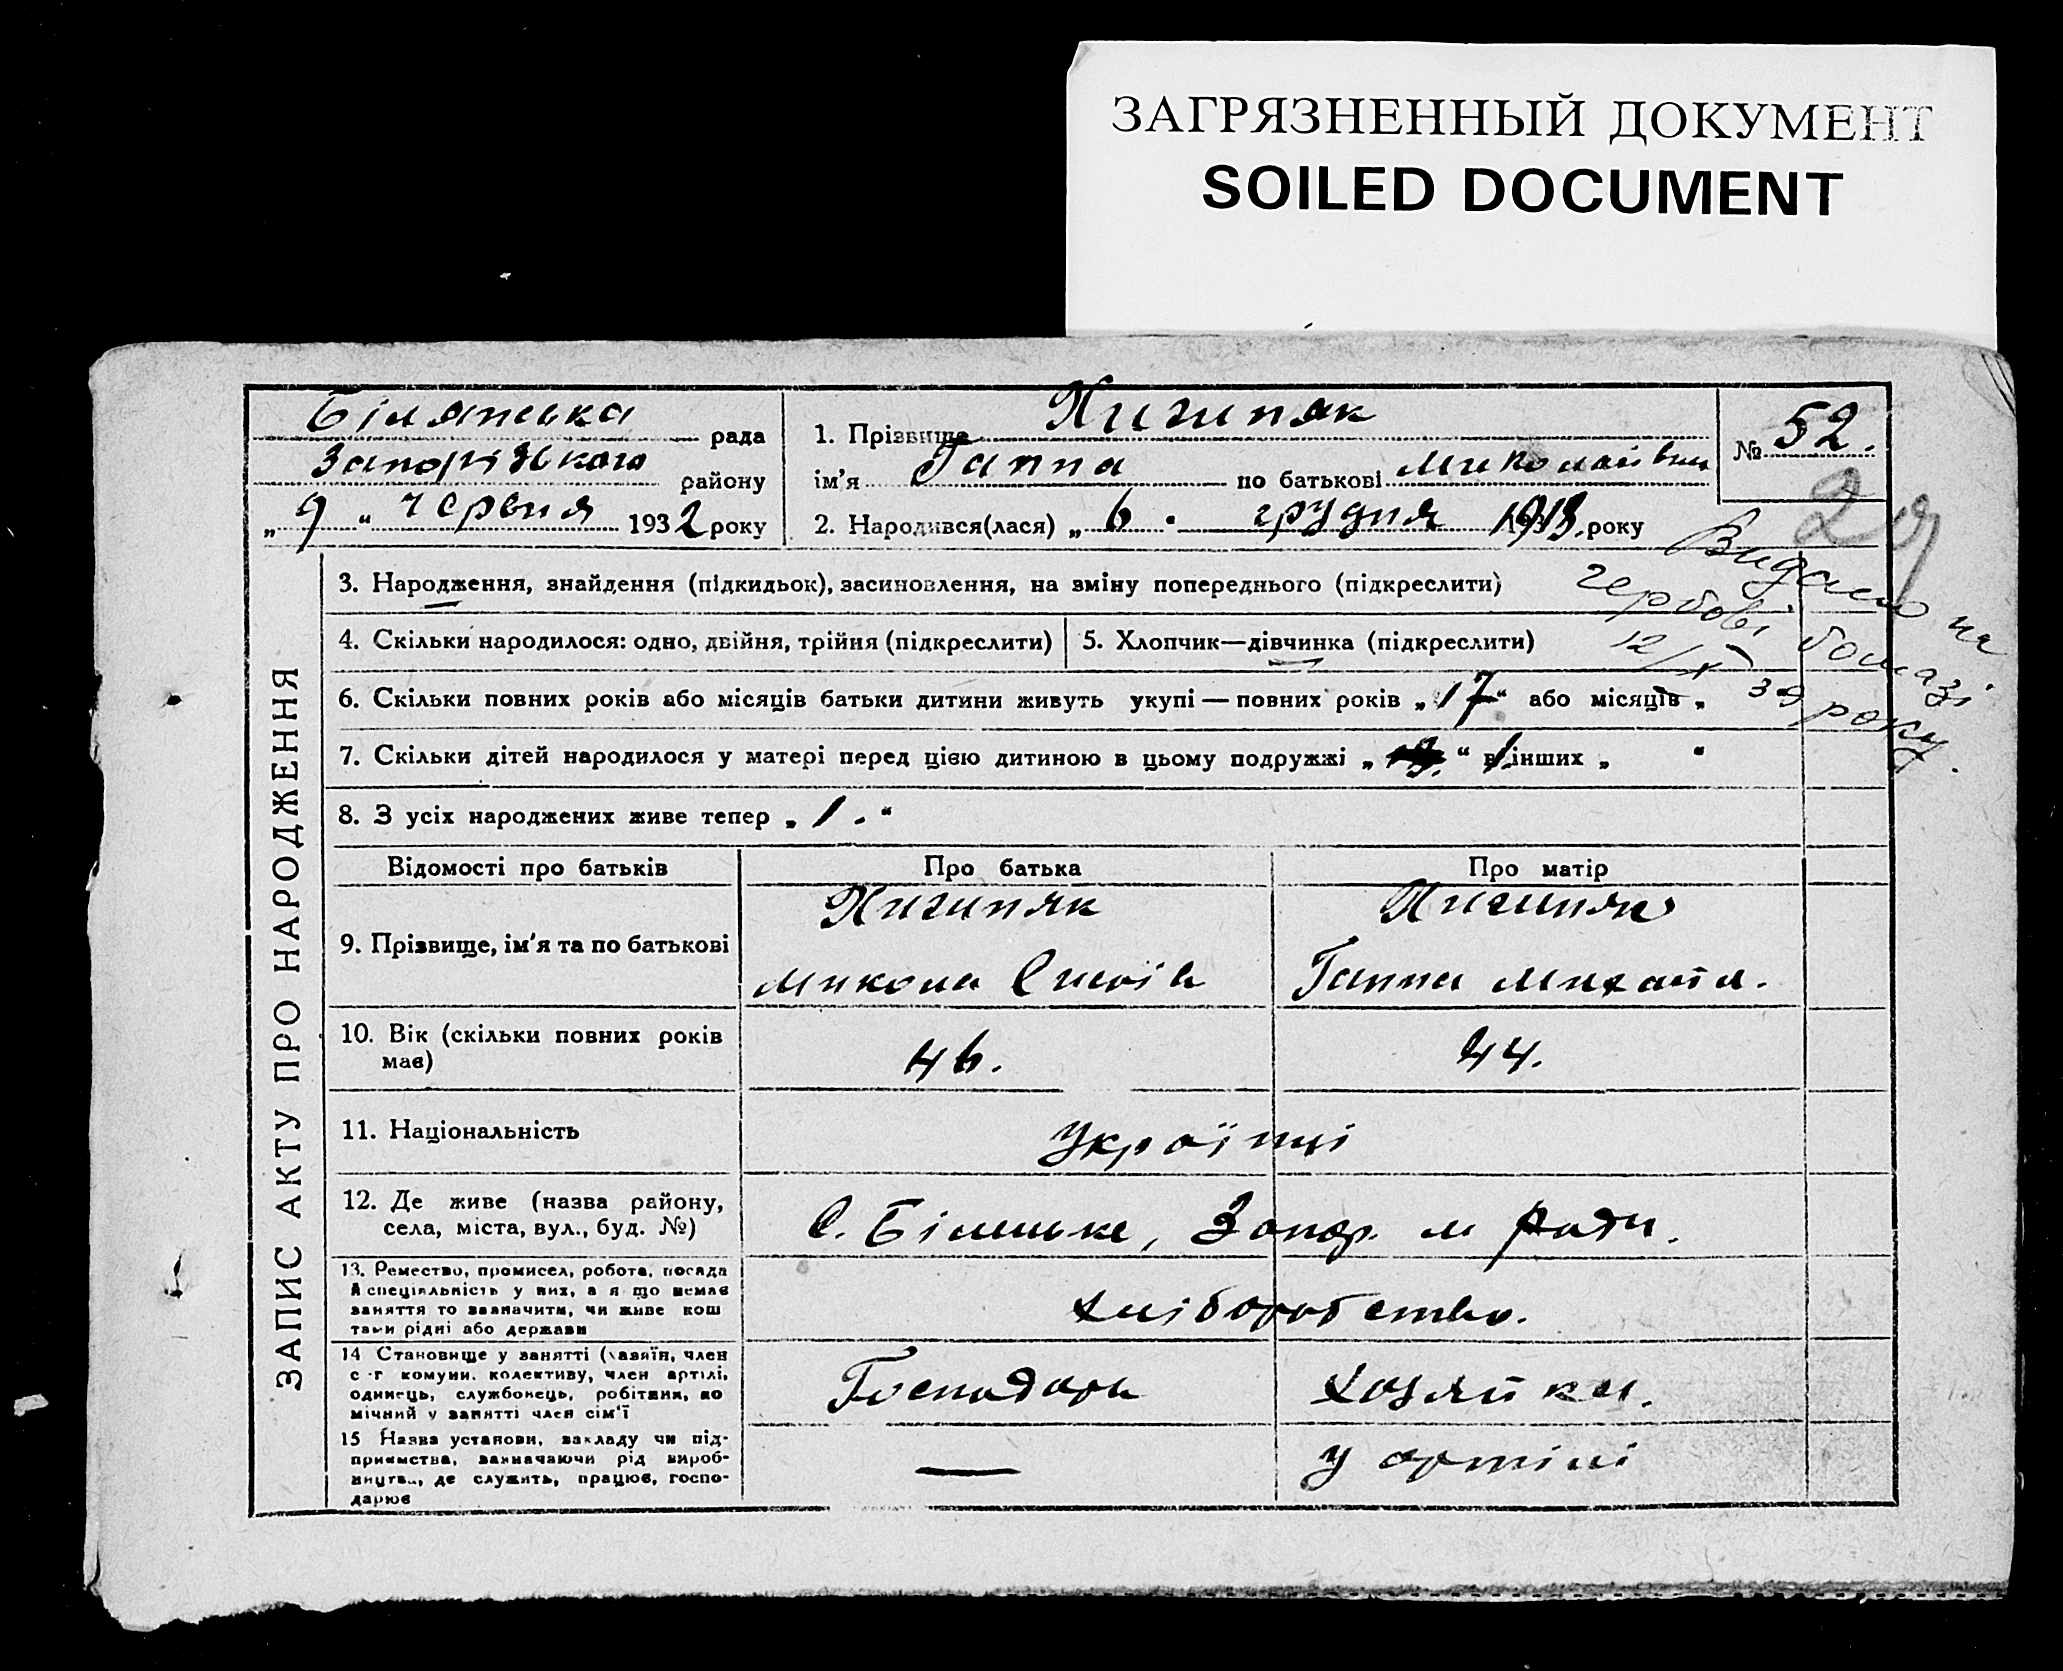 ЗАГРЯЗНЕННЫЙ ДОКУМЕНТ
SOILED DOCUMENT
рада
Запорізького району
„ 9 “ червня 1932 року
1. Прізвище
ім'я Ганна по батькові Миколаївна
2. Народився(лася) „ 6 . грудня 1913. року
№ 52.
29
Видано на
гербові бомазі
12/X 39 року.
ЗАПИС АКТУ ПРО НАРОДЖЕННЯ
3. Народження, знайдення (підкидьок), засиновлення, на зміну попереднього (підкреслити)
4. Скільки народилося: одно, двійня, трійня (підкреслити)
5. Хлопчик—дівчинка (підкреслити)
6. Скільки повних років або місяців батьки дитини живуть укупі — повних років „ 17 “ або місяців „
7. Скільки дітей народилося у матері перед цією дитиною в цьому подружжі „ “ в інших „ “
8. З усіх народжених живе тепер „ 1. “
Відомості про батьків
Про батька
Про матір
9. Прізвище, ім'я та по батькові
Микола
Ганна Михайл.
10. Вік (скільки повних років
має)
46.
44.
11. Національність
Українці
12. Де живе (назва району,
села, міста, вул., буд. №)
С. Біленьке, Запор. м ради.
13. Ремество, промисел, робота, посада
й спеціяльність у них, а я що немає
заняття то зазначити, чи живе кош
тами рідні або держави
хліборобство.
14 Становище у занятті (хазяїн, член
с-г комуни. колективу, член артілі,
одинець, службовець, робітник, по
мічний у занятті член сім'ї
Господарь
хозяйка.
15 Назва установи, закладу чи під-
приємства, зазначаючи рід вироб-
ництва, де служить, працює, госпо-
дарює
—
у артілі